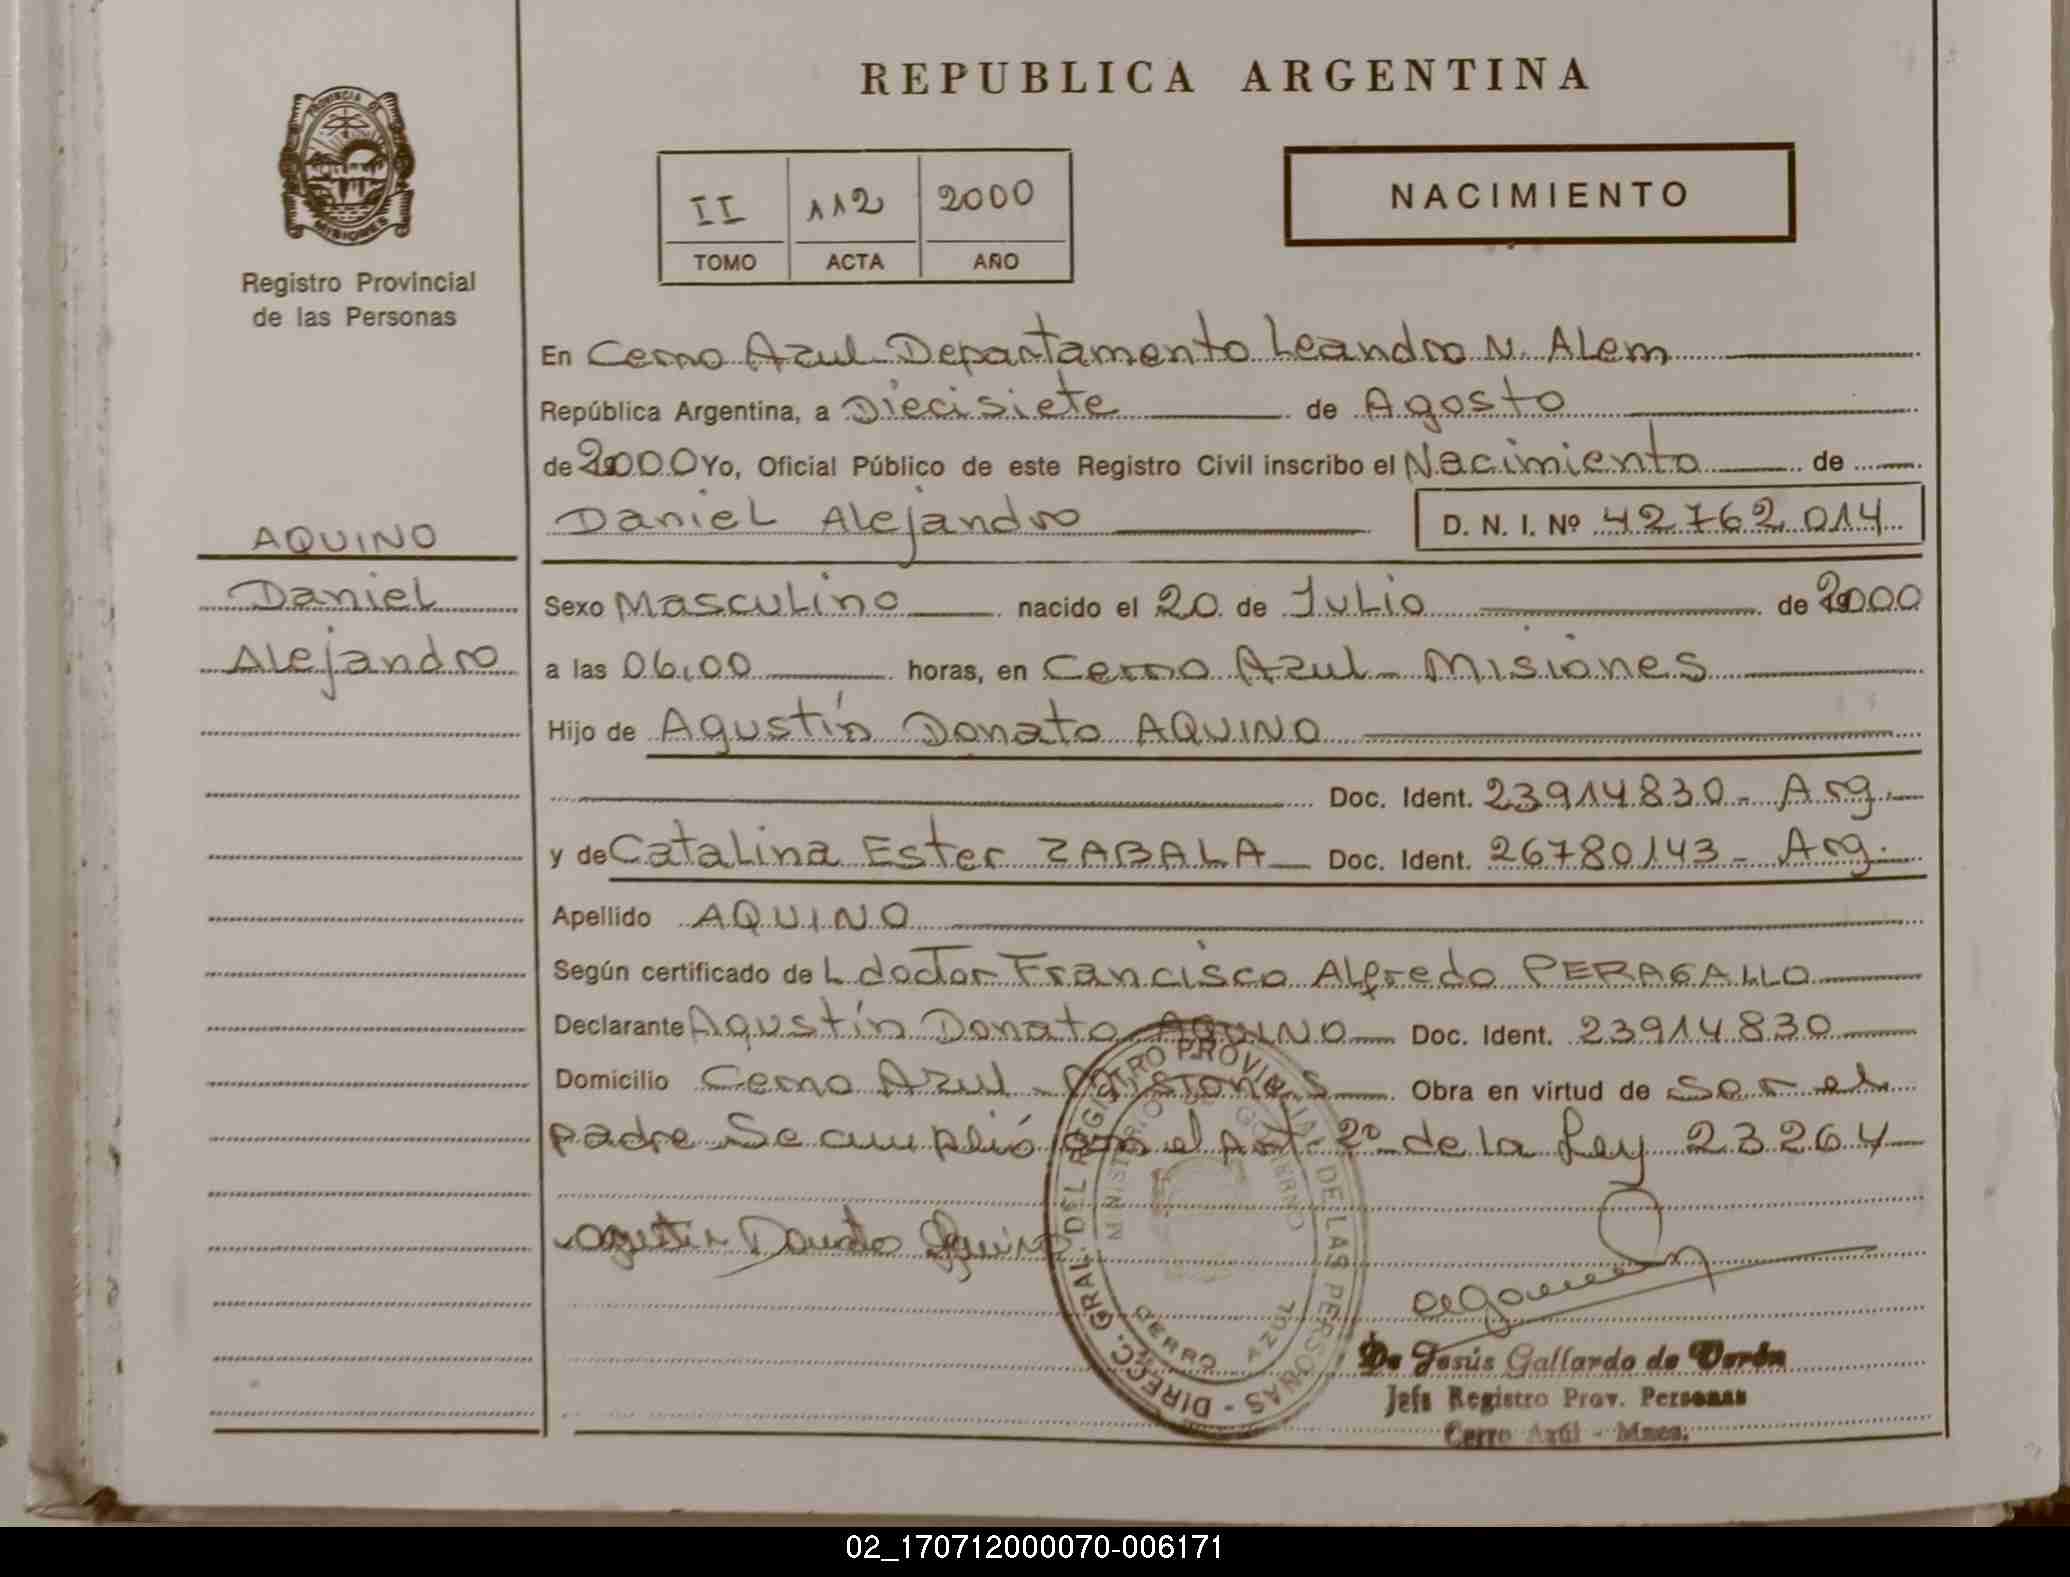 REPUBLICA ARGENTINA
PROVINCIA DE
MISIONES
Registro Provincial
de las Personas
II 112 2000
TOMO ACTA AÑO
NACIMIENTO
En Cerro Azul Departamento Leandro N. Alem
República Argentina, a Diecisiete de Agosto
de 2000 Yo, Oficial Público de este Registro Civil inscribo el Nacimiento de
Daniel Alejandro D. N. I. Nº 42762.014
AQUINO
Daniel
Alejandro
Sexo Masculino nacido el 20 de Julio de 2000
a las 06,00 horas, en Cerro Azul - Misiones
Hijo de Agustín Donato AQUINO
Doc. Ident. 23914830 - Arg.
y de Catalina Ester ZABALA Doc. Ident. 26780143 - Arg.
Apellido AQUINO
Según certificado de L doctor Francisco Alfredo PERAGALLO
Declarante Agustín Donato AQUINO Doc. Ident. 23914830
Domicilio Cerro Azul - Misiones Obra en virtud de ser el
padre Se cumplió con el Art. 2º de la Ley 23264
Agustin Donato Aquino
DIREC. GRAL. DEL REGISTRO PROVINCIAL DE LAS PERSONAS -
MINISTERIO DE GOBIERNO
CERRO AZUL
De Jesús Gallardo de Verón
Jefe Registro Prov. Personas
Cerro Azúl - Mnes.
02_170712000070-006171